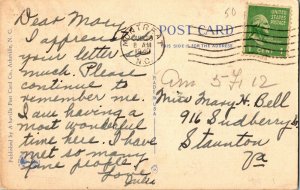 Dear Mary,
I appreciate
your letter
much. Please
continue to
remember me.
I am having a
most wonderful
time here. I have
met so many
fine people.
Love
POST CARD
THIS SIDE IS FOR THE ADDRESS
8 AM
N.C.
50
UNITED STATES
POSTAGE
Am 5-7, 12
Miss Mary H. Bell
916 Sudberry St
Staunton
Va
Published by Asheville Post Card Co., Asheville, N. C.